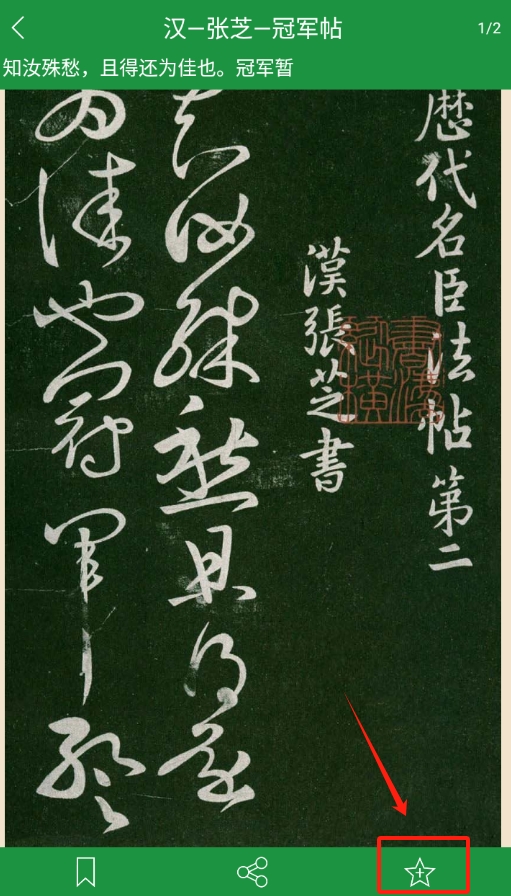 汉—张芝—冠军帖
1/2
知汝殊愁，且得还为佳也。冠军暂
歷代名臣法帖第二
漢張芝書
知汝殊愁且得還
為佳也冠軍暫